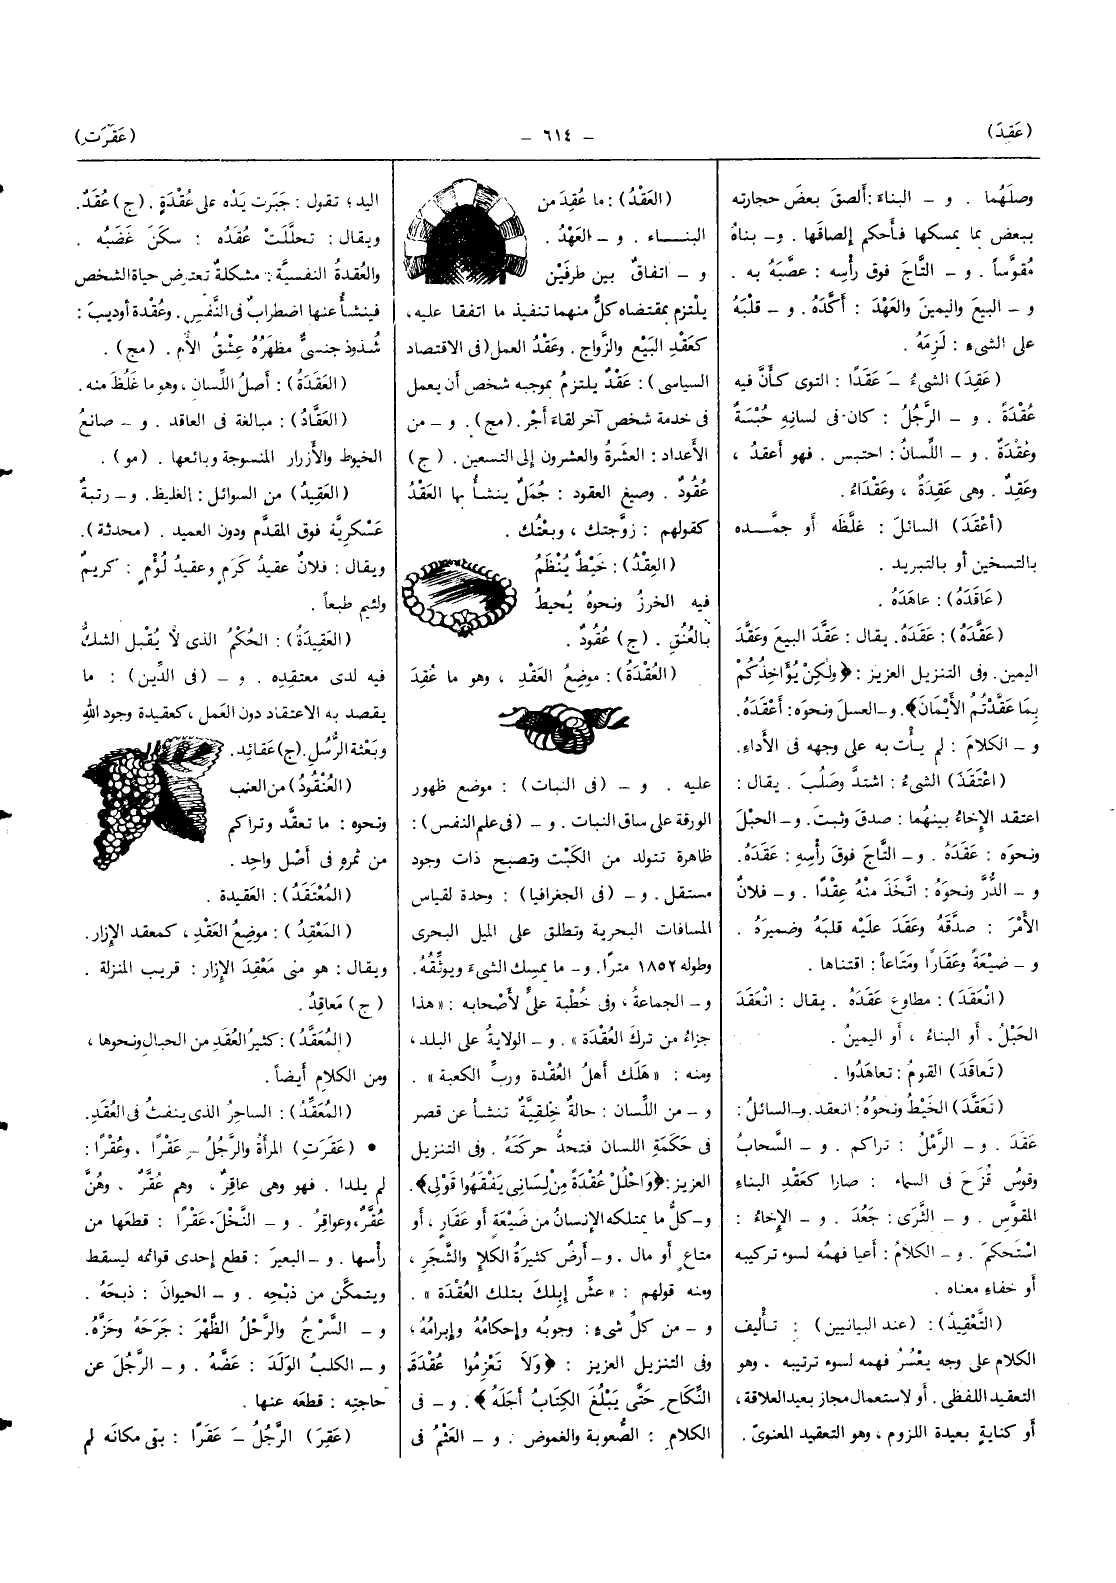 (عَقِدَ)
— ٦١٤ —
(عَقَرَتِ)
وصلَهُما . و – البناءَ : ألصقَ بعضَ حجارته
ببعض بما يمسكها فأحكم إلصاقَها . و – بناهُ
مُقوَّساً . و – التَّاجَ فوق رأسِه : عصَّبَهُ به .
و – البيعَ واليمينَ والعَهْدَ : أَكَّدَهُ . و – قلبَهُ
على الشيءِ : لَزِمَهُ .
(عَقِدَ) الشيءُ ـَ عَقَدًا : التوى كأنَّ فيه
عُقْدَةً . و – الرَّجُلُ : كان فى لسانِهِ حُبْسَةٌ
وعُقْدَةٌ . و – اللِّسانُ : احتبس . فهو أعقدُ ،
وعَقِدٌ . وهى عَقِدَةٌ ، وعَقْدَاءُ .
(أعْقَدَ) السائلَ : غلَّظَه أو جمَّده
بالتسخين أو بالتبريد .
(عَاقَدَهُ) : عاهَدَهُ .
(عَقَّدَهُ) : عَقَدَهُ . يقال : عَقَّدَ البيعَ وعَقَّدَ
اليمين . وفى التنزيل العزيز : ﴿وَلَكِنْ يُؤَاخِذُكُمْ
بِمَا عَقَّدْتُمُ الأَيْمَانَ﴾ . و – العسلَ ونحوَه : أعْقَدَهُ .
و – الكلامَ : لم يأت به على وجهه فى الأداءِ.
(اعْتَقَدَ) الشيءُ : اشتدَّ وصَلُبَ . يقال :
اعتقد الإخاءُ بينهُما : صدقَ وثبتَ. و – الحبْلَ
ونحوَه : عَقَدَهُ . و – التَّاجَ فوقَ رأْسِهِ : عَقَدَهُ.
و – الدُّرَّ ونحوَهُ : اتَّخَذَ مِنْهُ عِقْدًا . و – فلانٌ
الأمْرَ : صدَّقَهُ وعَقَدَ علَيْه قلبَهُ وضميرَهُ .
و – ضَيْعَةً وعَقَارًا ومَتَاعاً : اقتناها .
(انْعَقَدَ) : مطاوع عَقَدَهُ . يقال : انْعَقَدَ
الحَبْلُ ، أو البناءُ ، أو اليمينُ .
(تَعاقَدَ) القومُ : تعاهَدُوا .
(تَعَقَّدَ) الخَيْطُ ونحوُهُ : انعقد. و – السائلُ :
عَقَدَ . و – الرَّمْلُ : تراكم . و – السَّحابُ
وقوسُ قُزَحَ فى السماءِ : صارا كعَقْدِ البناءِ
المقوَّسِ . و – الثَّرَى : جَعُدَ . و – الإخاءُ :
استَحكمَ . و – الكلامُ : أعيا فهمُه لسوءِ تركيبه
أو خفاءِ معناه .
(التَّعْقِيدُ) : (عند البيانيين) : تأليف
الكلام على وجه يعْسُرُ فهمه لسوءِ ترتيبه . وهو
التعقيد اللفظى . أو لاستعمال مجاز بعيد العلاقة ،
أو كنايةٍ بعيدة اللزوم ، وهو التعقيد المعنوىّ .
(العَقْدُ) : ما عُقِدَ من
البناء . و – العَهْدُ .
و – اتفاقٌ بين طرفَيْن
يلْتزم بمقتضاه كلٌّ منهما تنفيذ ما اتفقا عليه ،
كعَقْدِ البَيْع والزَّواج . وعَقْدُ العمل (فى الاقتصاد
السياسى) : عَقْدٌ يلتزمُ بموجبه شخص أن يعمل
فى خدمة شخص آخر لقاءَ أجْر . (مج) . و – من
الأعداد : العشَرةُ والعشرون إلى التسعين . (ج)
عُقُودٌ . وصيغ العقود : جُمَلٌ ينشأ بها العَقْدُ
كقولهم : زوَّجتك ، وبعْتُك .
(العِقْدُ) : خَيْطٌ يُنْظَمُ
فيه الخرزُ ونحوهُ يُحيطُ
بالعُنُقِ . (ج) عُقُودٌ .
(العُقْدَةُ) : موضِعُ العَقْدِ ، وهو ما عُقِدَ
عليه . و – (فى النبات) : موضع ظهور
الورقة على ساق النبات . و – (فى علم النفس) :
ظاهرة تتولد من الكَبْت وتصبح ذات وجود
مستقل . و – (فى الجغرافيا) : وحدة لقياس
المسافات البحرية وتطلق على الميل البحرى
وطوله ١٨٥٢ مترًا. و – ما يمسِك الشيءَ ويوثِّقُهُ .
و – الجماعةُ ، وفى خُطْبة علىٍّ لأصْحابه : « هذا
جزاءُ من تركَ العُقْدَةَ » . و – الولايةُ على البلد ،
ومنه : « هَلَك أهلُ العُقْدة وربِّ الكعبة » .
و – من اللِّسان : حالةٌ خِلْقِيَّةٌ تنشأ عن قصر
فى حَكَمَةِ اللسان فتحدُّ حركتَهُ . وفى التنزيل
العزيز : ﴿وَاحْلُلْ عُقْدَةً مِنْ لِسَانِى يَفْقَهُوا قَوْلِى﴾ .
و – كلُّ ما يمتلكه الإنسانُ من ضَيْعَةٍ أو عَقَارٍ ، أو
متاعٍ أو مال . و – أرضٌ كثيرَةُ الكلإ والشَّجَرِ ،
ومنه قولهم : « عشِّ إبِلكَ بتلك العُقْدَة » .
و – من كلِّ شىءٍ : وجوبُه وإحكامُهُ وإبرامُهُ ؛
وفى التنزيل العزيز : ﴿وَلاَ تَعْزِمُوا عُقْدَةَ
النِّكَاحِ حَتَّى يَبْلُغَ الكِتَابُ أجَلَهُ﴾ . و – فى
الكلام : الصُّعوبة والغموض . و – العَثْمُ فى
اليد ؛ تقول : جَبَرت يَدُه على عُقْدَةٍ . (ج) عُقَدٌ.
ويقال : تحلَّلَتْ عُقَدُه : سكنَ غَضَبُه .
والعُقدةُ النفسيَّة : مشكلةٌ تعترض حياة الشخص
فينشأُ عنها اضطرابٌ فى النَّفْس. وعُقْدة أوديب :
شُذوذ جنسىٌّ مظهَرُه عِشْقُ الأُم . (مج) .
(العَقَدَةُ) : أصلُ اللِّسان ، وهو ما غَلُظَ منه .
(العَقَّادُ) : مبالغة فى العاقد . و – صانعُ
الخيوط والأزرار المنسوجة وبائعها . (مو) .
(العَقِيدُ) من السوائل : الغليظ. و – رتبةٌ
عَسْكريَّة فوق المقدَّم ودون العميد . (محدثة).
ويقال : فلانٌ عقيدُ كَرَمٍ وعقيدُ لُؤْمٍ : كريمٌ
ولئيم طبعاً .
(العَقِيدَةُ) : الحُكْمُ الذى لاَ يُقْبل الشكُّ
فيه لدى معتقِده . و – (فى الدِّين) : ما
يقصد به الاعتقاد دون العَمل ، كعقيدة وجود الله
وبَعْثة الرُّسُل . (ج) عَقائِد .
(العُنْقُودُ) من العنب
ونحوه : ما تعقَّد وتراكم
من ثمرهِ فى أصْل واحِدٍ .
(المُعْتَقَدُ) : العَقيدة .
(المَعْقِدُ) : موضِعُ العَقْدِ ، كمعقد الإزار.
ويقال : هو منى مَعْقِدَ الإزار : قريب المنزلة .
(ج) مَعاقِدُ .
(المُعَقَّدُ) : كثيرُ العُقَدِ من الحبال ونحوها ،
ومن الكلامِ أيضاً .
(المُعَقِّدُ) : الساحِرُ الذى ينفثُ فى العُقَدِ.
• (عَقَرَتِ) المرأةُ والرَّجُلُ ـِ عَقْرًا ، وعُقْرًا :
لم يلدا . فهو وهى عاقِرٌ ، وهم عُقَّرٌ ، وهُنَّ
عُقَّرٌ ، وعواقِرُ . و – النَّخْلَ عَقْرًا : قطعَها من
رأسها . و – البعيرَ : قطع إحدى قوائمه ليسقط
ويتمكَّن من ذبْحِه . و – الحيوانَ : ذبحَهُ .
و – السَّرْجُ والرَّحْلُ الظَّهْرَ : جَرَحَهُ وحَزَّهُ.
و – الكلبُ الوَلَدَ : عَضَّهُ . و – الرَّجُلَ عن
حاجتِه : قطعَه عنها .
(عَقِرَ) الرَّجُلُ ـَ عَقَرًا : بقى مكانَه لم